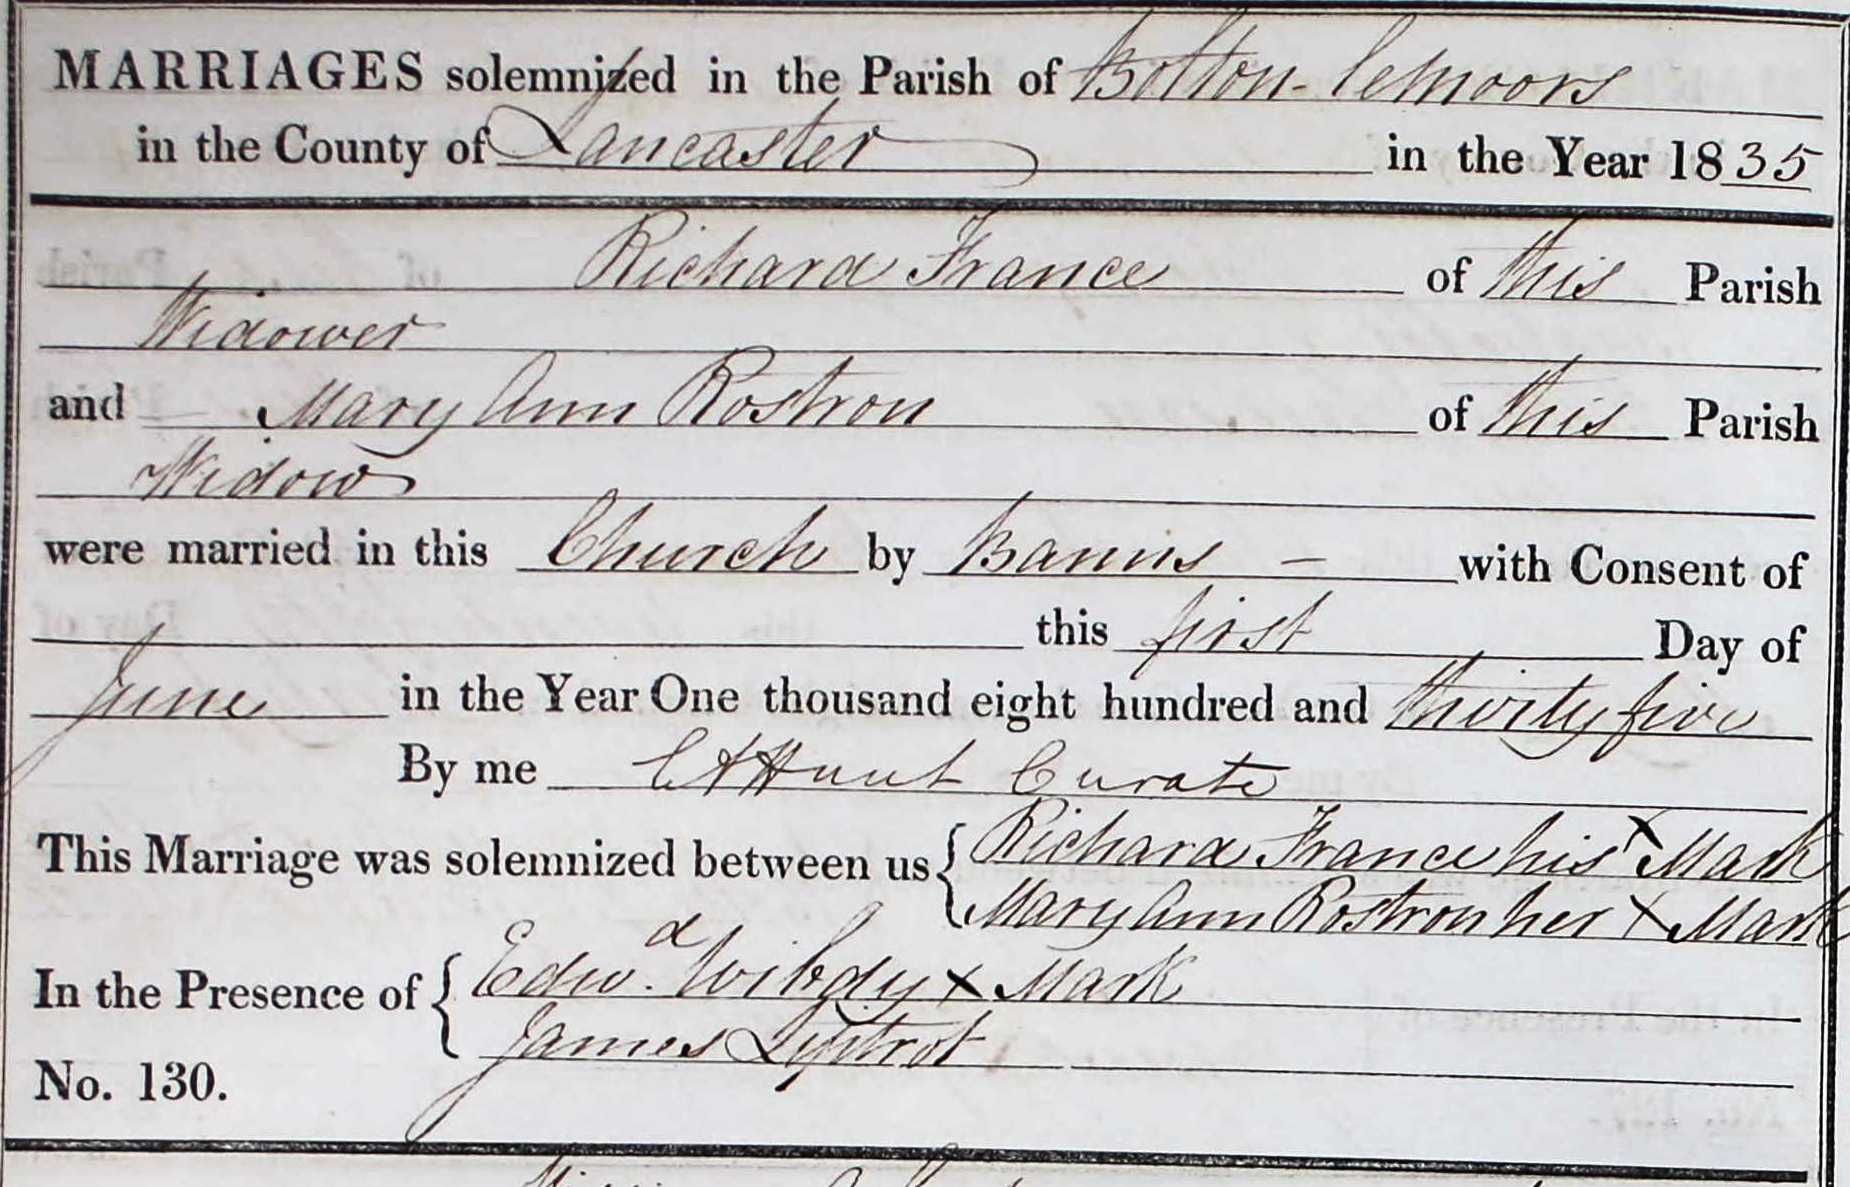 MARRIAGES solemnized in the Parish of Bolton-le Moors
in the County of Lancaster in the Year 1835
Richard France of this Parish
Widower
and Mary Ann Rostron of this Parish
Widow
were married in this Church by Banns — with Consent of
this first Day of
June in the Year One thousand eight hundred and thirty five
By me Hunt Curate
This Marriage was solemnized between us { Richard France his X Mark
Mary Ann Rostron her X Mark
In the Presence of { Edwd. X Mark
James Lyptrot
No. 130.